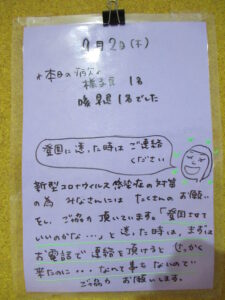 7月2日(木)
*本日の病欠
様子見 1名
喉風邪 1名でした
登園に迷った時は ご連絡
ください
新型コロナウイルス感染症の対策
の為 みなさんには たくさんの お願い
をし、ご協力 頂いています。「登園させて
いいのかな…」と 迷った時は、まずは
お電話で 連絡を 頂けると せっかく
来たのに・・・ なんて事も ないので
ご協力 お願いします。